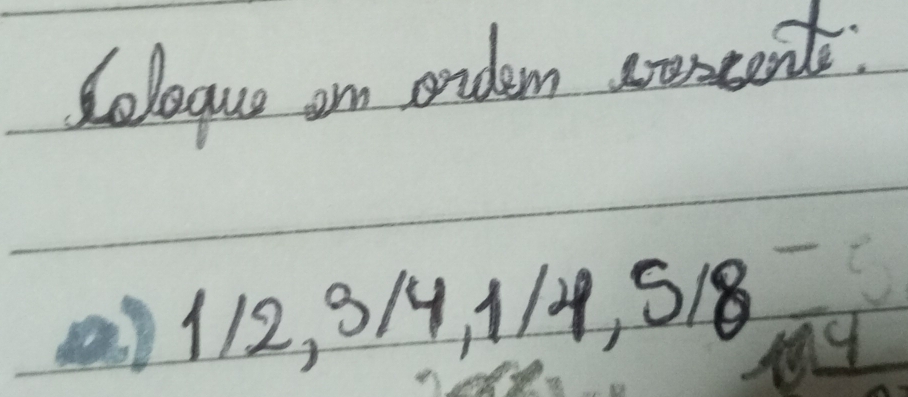 Coloque em ordem crescente:
a) 1/2, 3/4, 1/4, 5/8